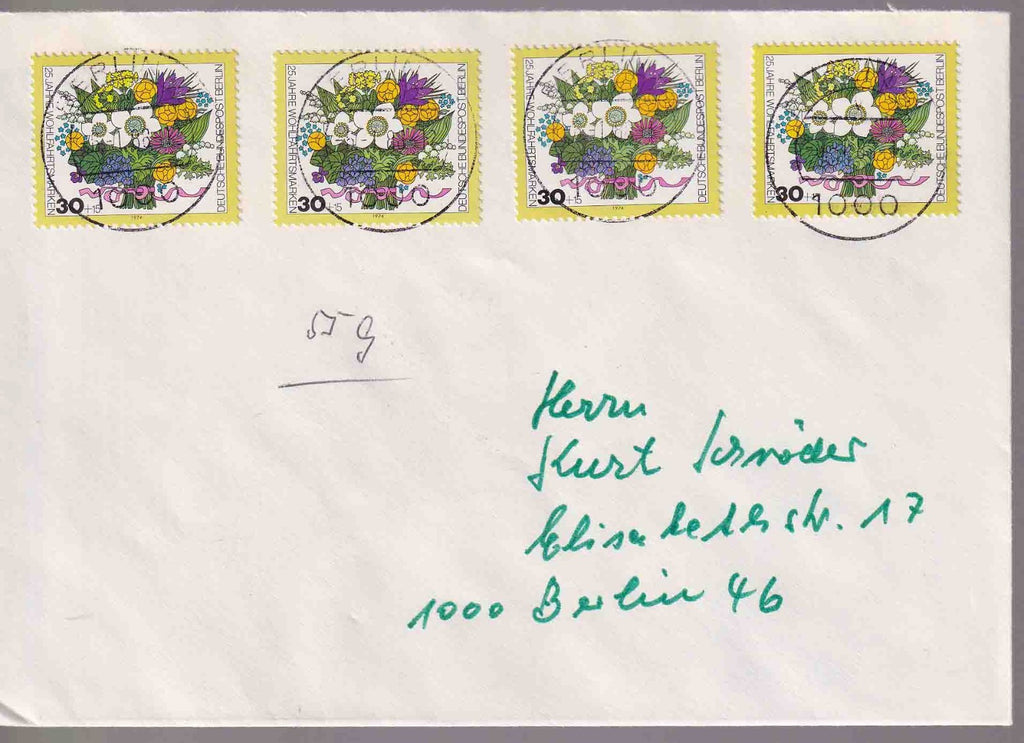 25 JAHRE WOHLFAHRTSMARKEN
DEUTSCHE BUNDESPOST BERLIN
30+15
1974
BERLIN
1000
25 JAHRE WOHLFAHRTSMARKEN
DEUTSCHE BUNDESPOST BERLIN
30+15
1974
BERLIN
25 JAHRE WOHLFAHRTSMARKEN
DEUTSCHE BUNDESPOST BERLIN
30+15
1974
BERLIN
25 JAHRE WOHLFAHRTSMARKEN
DEUTSCHE BUNDESPOST BERLIN
30+15
1000
55 g
Herrn
Kurt Schröder
Elisabethstr. 17
1000 Berlin 46